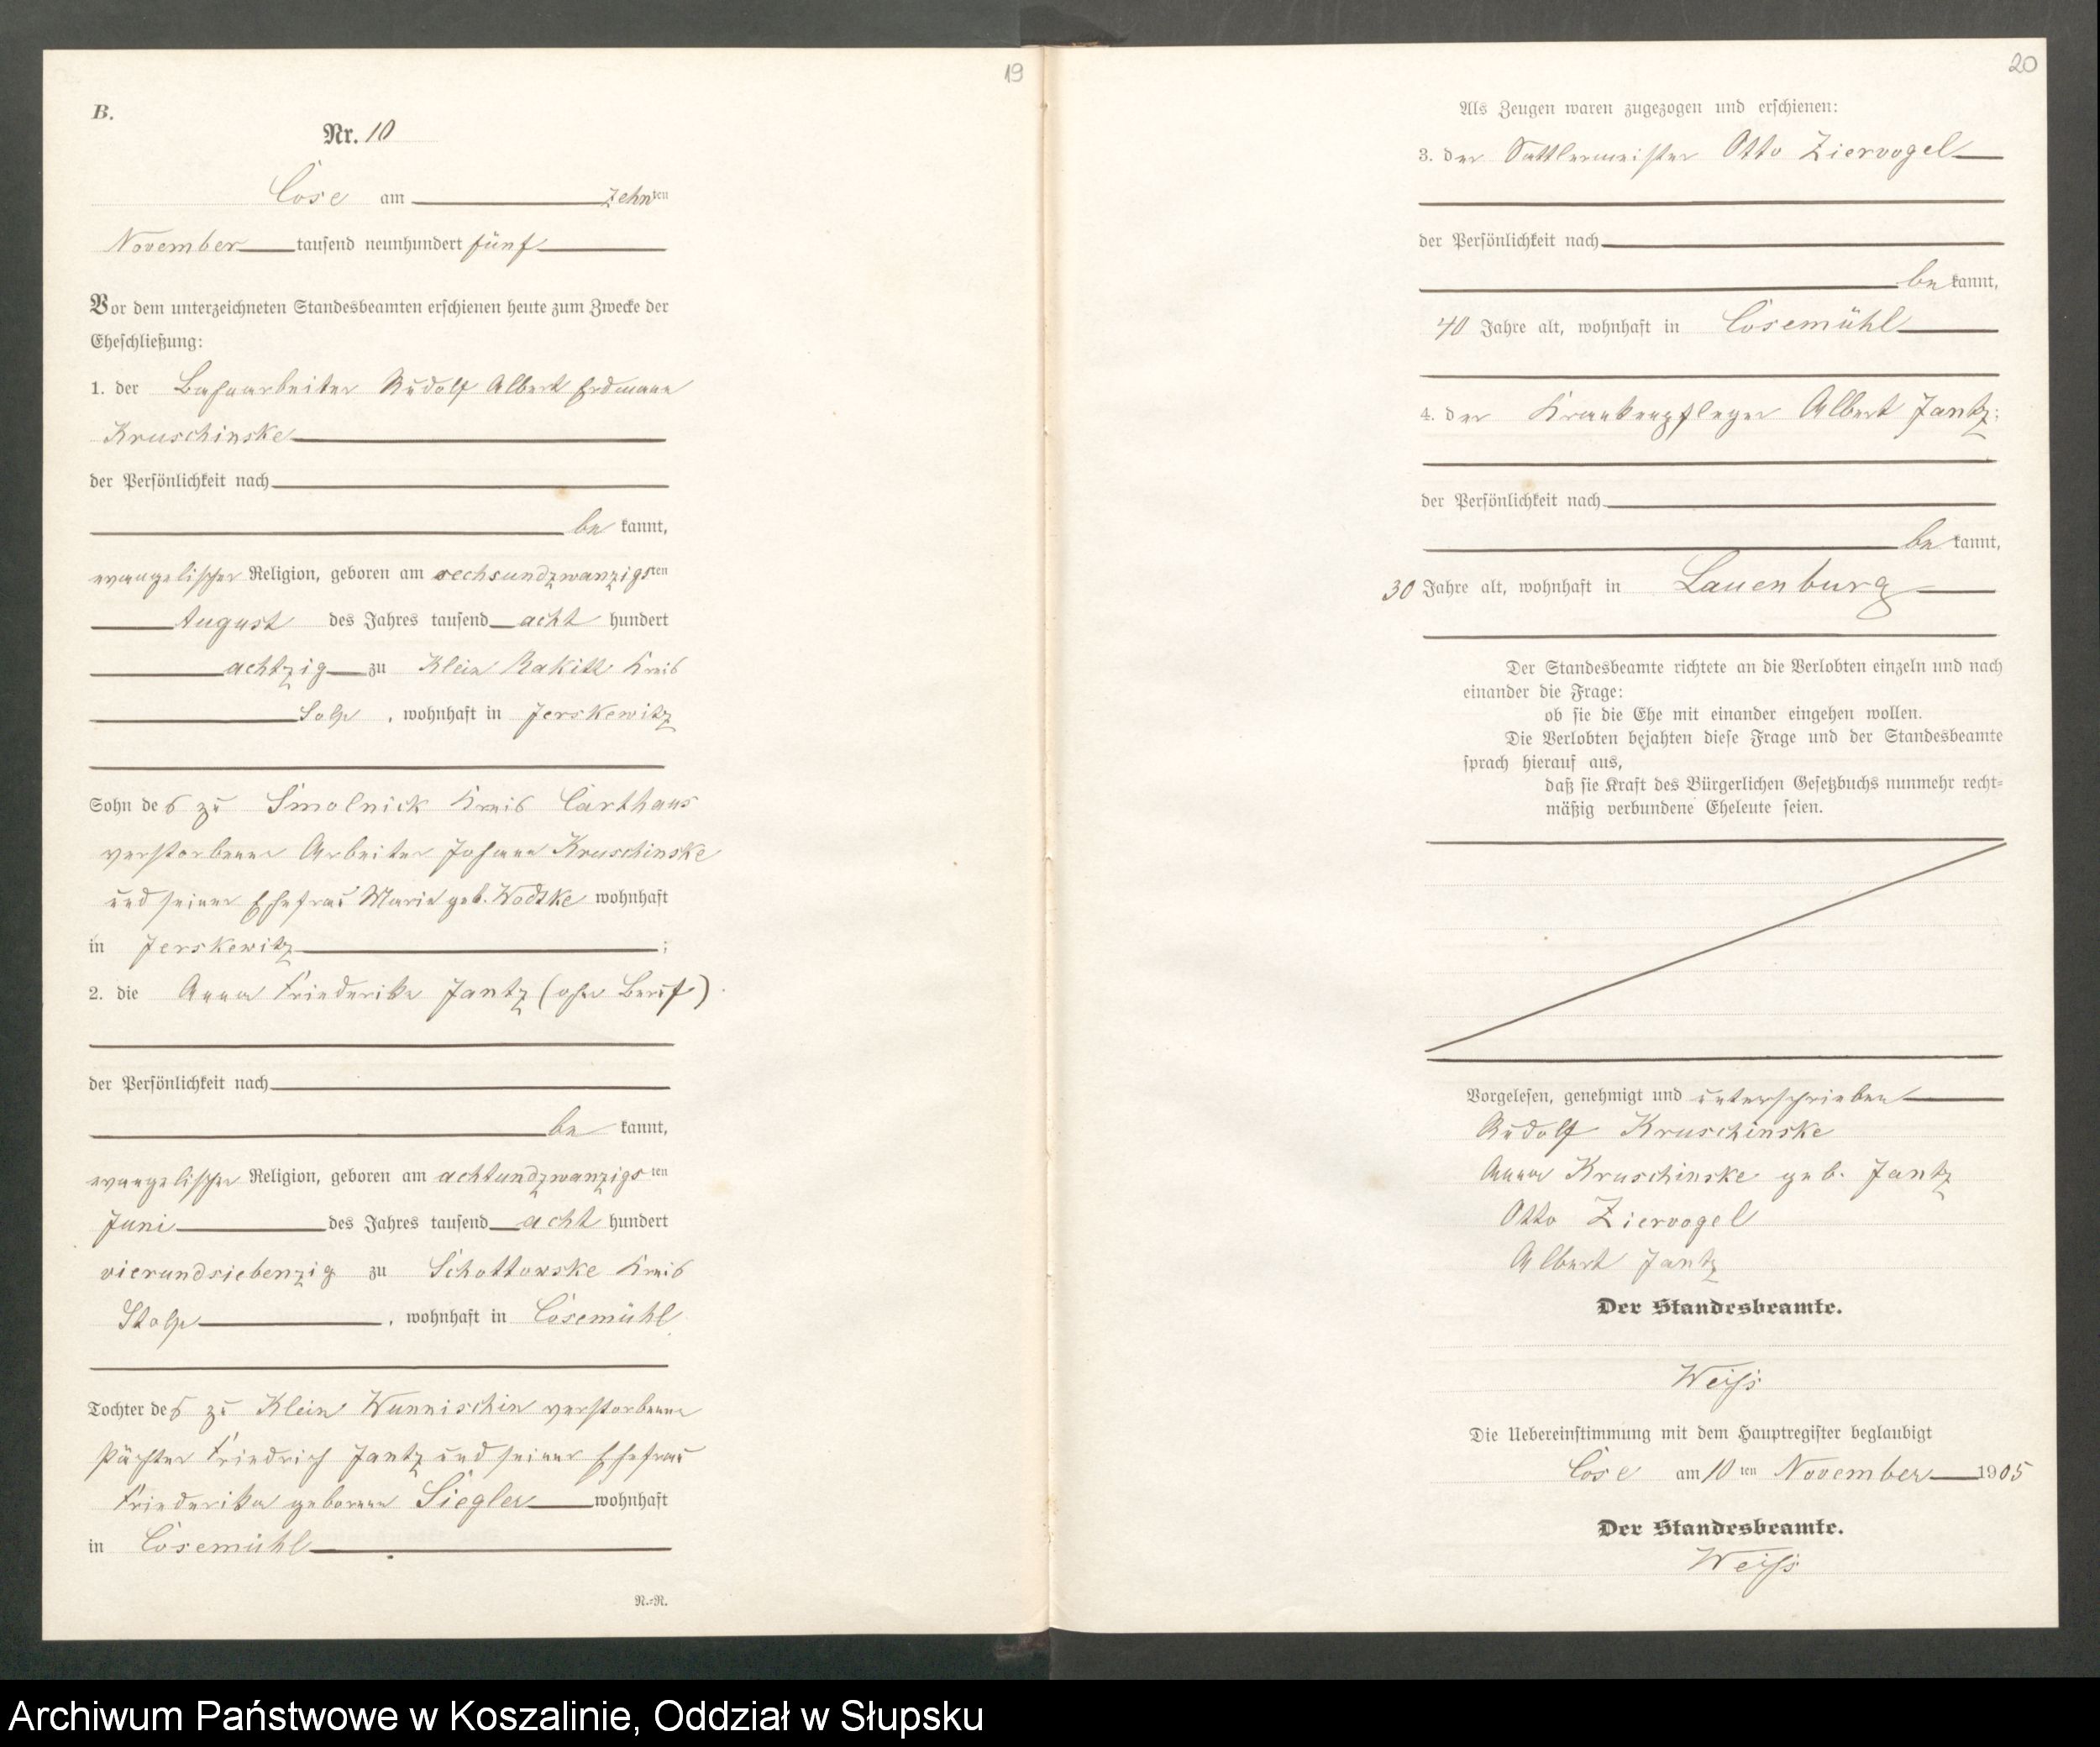 19
B.
Nr. 10
Cose am zehnten
November tausend neunhundert fünf
Vor dem unterzeichneten Standesbeamten erschienen heute zum Zwecke der
Eheschließung:
1. der Bahnarbeiter Rudolf Albert Erdmann
Kruschinske
der Persönlichkeit nach
be kannt,
evangelischer Religion, geboren am sechsundzwanzigsten
August des Jahres tausend acht hundert
achtzig zu Klein Rakitt Kreis
Solp, wohnhaft in Jerskewitz
Sohn des zu Smolnick Kreis Carthaus
verstorbenen Arbeiter Johann Kruschinske
und seiner Ehefrau Marie geb. Wodtke wohnhaft
in Jerskewitz ;
2. die Anna Friederike Jantz (ohne Beruf)
der Persönlichkeit nach
be kannt,
evangelischer Religion, geboren am achtundzwanzigsten
Juni des Jahres tausend acht hundert
vierundsiebenzig zu Schottowske Kreis
Stolp, wohnhaft in Cosemühl
Tochter des zu Klein Wunnischin verstorbenen
Pächter Friedrich Jantz und seiner Ehefrau
Friederike geborene Siegler wohnhaft
in Cosemühl
R.=R.
20
Als Zeugen waren zugezogen und erschienen:
3. der Sattlermeister Otto Ziervogel
der Persönlichkeit nach
be kannt,
40 Jahre alt, wohnhaft in Cosemühl
4. der Krankenpfleger Albert Jantz;
der Persönlichkeit nach
be kannt,
30 Jahre alt, wohnhaft in Lauenburg
Der Standesbeamte richtete an die Verlobten einzeln und nach
einander die Frage:
ob sie die Ehe mit einander eingehen wollen.
Die Verlobten bejahten diese Frage und der Standesbeamte
sprach hierauf aus,
daß sie Kraft des Bürgerlichen Gesetzbuchs nunmehr recht=
mäßig verbundene Eheleute seien.
Vorgelesen, genehmigt und unterschrieben
Rudolf Kruschinske
Anna Kruschinske geb. Jantz
Otto Ziervogel
Albert Jantz
Der Standesbeamte.
Weiß
Die Uebereinstimmung mit dem Hauptregister beglaubigt
Cose am 10 ten November 1905
Der Standesbeamte.
Weiß
Archiwum Państwowe w Koszalinie, Oddział w Słupsku